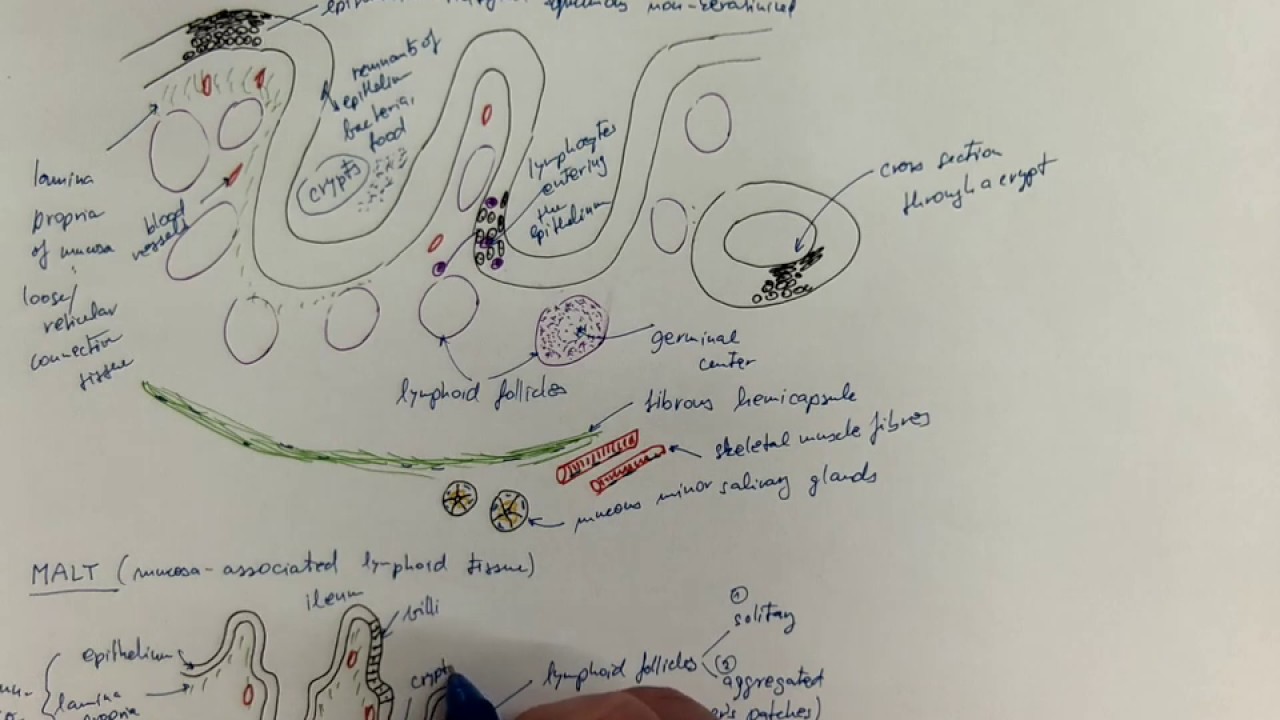 non-keratinized
remnants of
epithelium
bacteria,
food
crypts
lymphocytes
entering
the
epithelium
cross section
through a crypt
lamina
propria
of mucosa
loose/
reticular
connective
tissue
blood
vessels
germinal
center
lymphoid follicles
fibrous hemicapsule
skeletal muscle fibres
mucous minor salivary glands
MALT (mucosa-associated lymphoid tissue)
ileum
villi
epithelium
lamina
propria
crypts
lymphoid follicles
① solitary
② aggregated
patches)